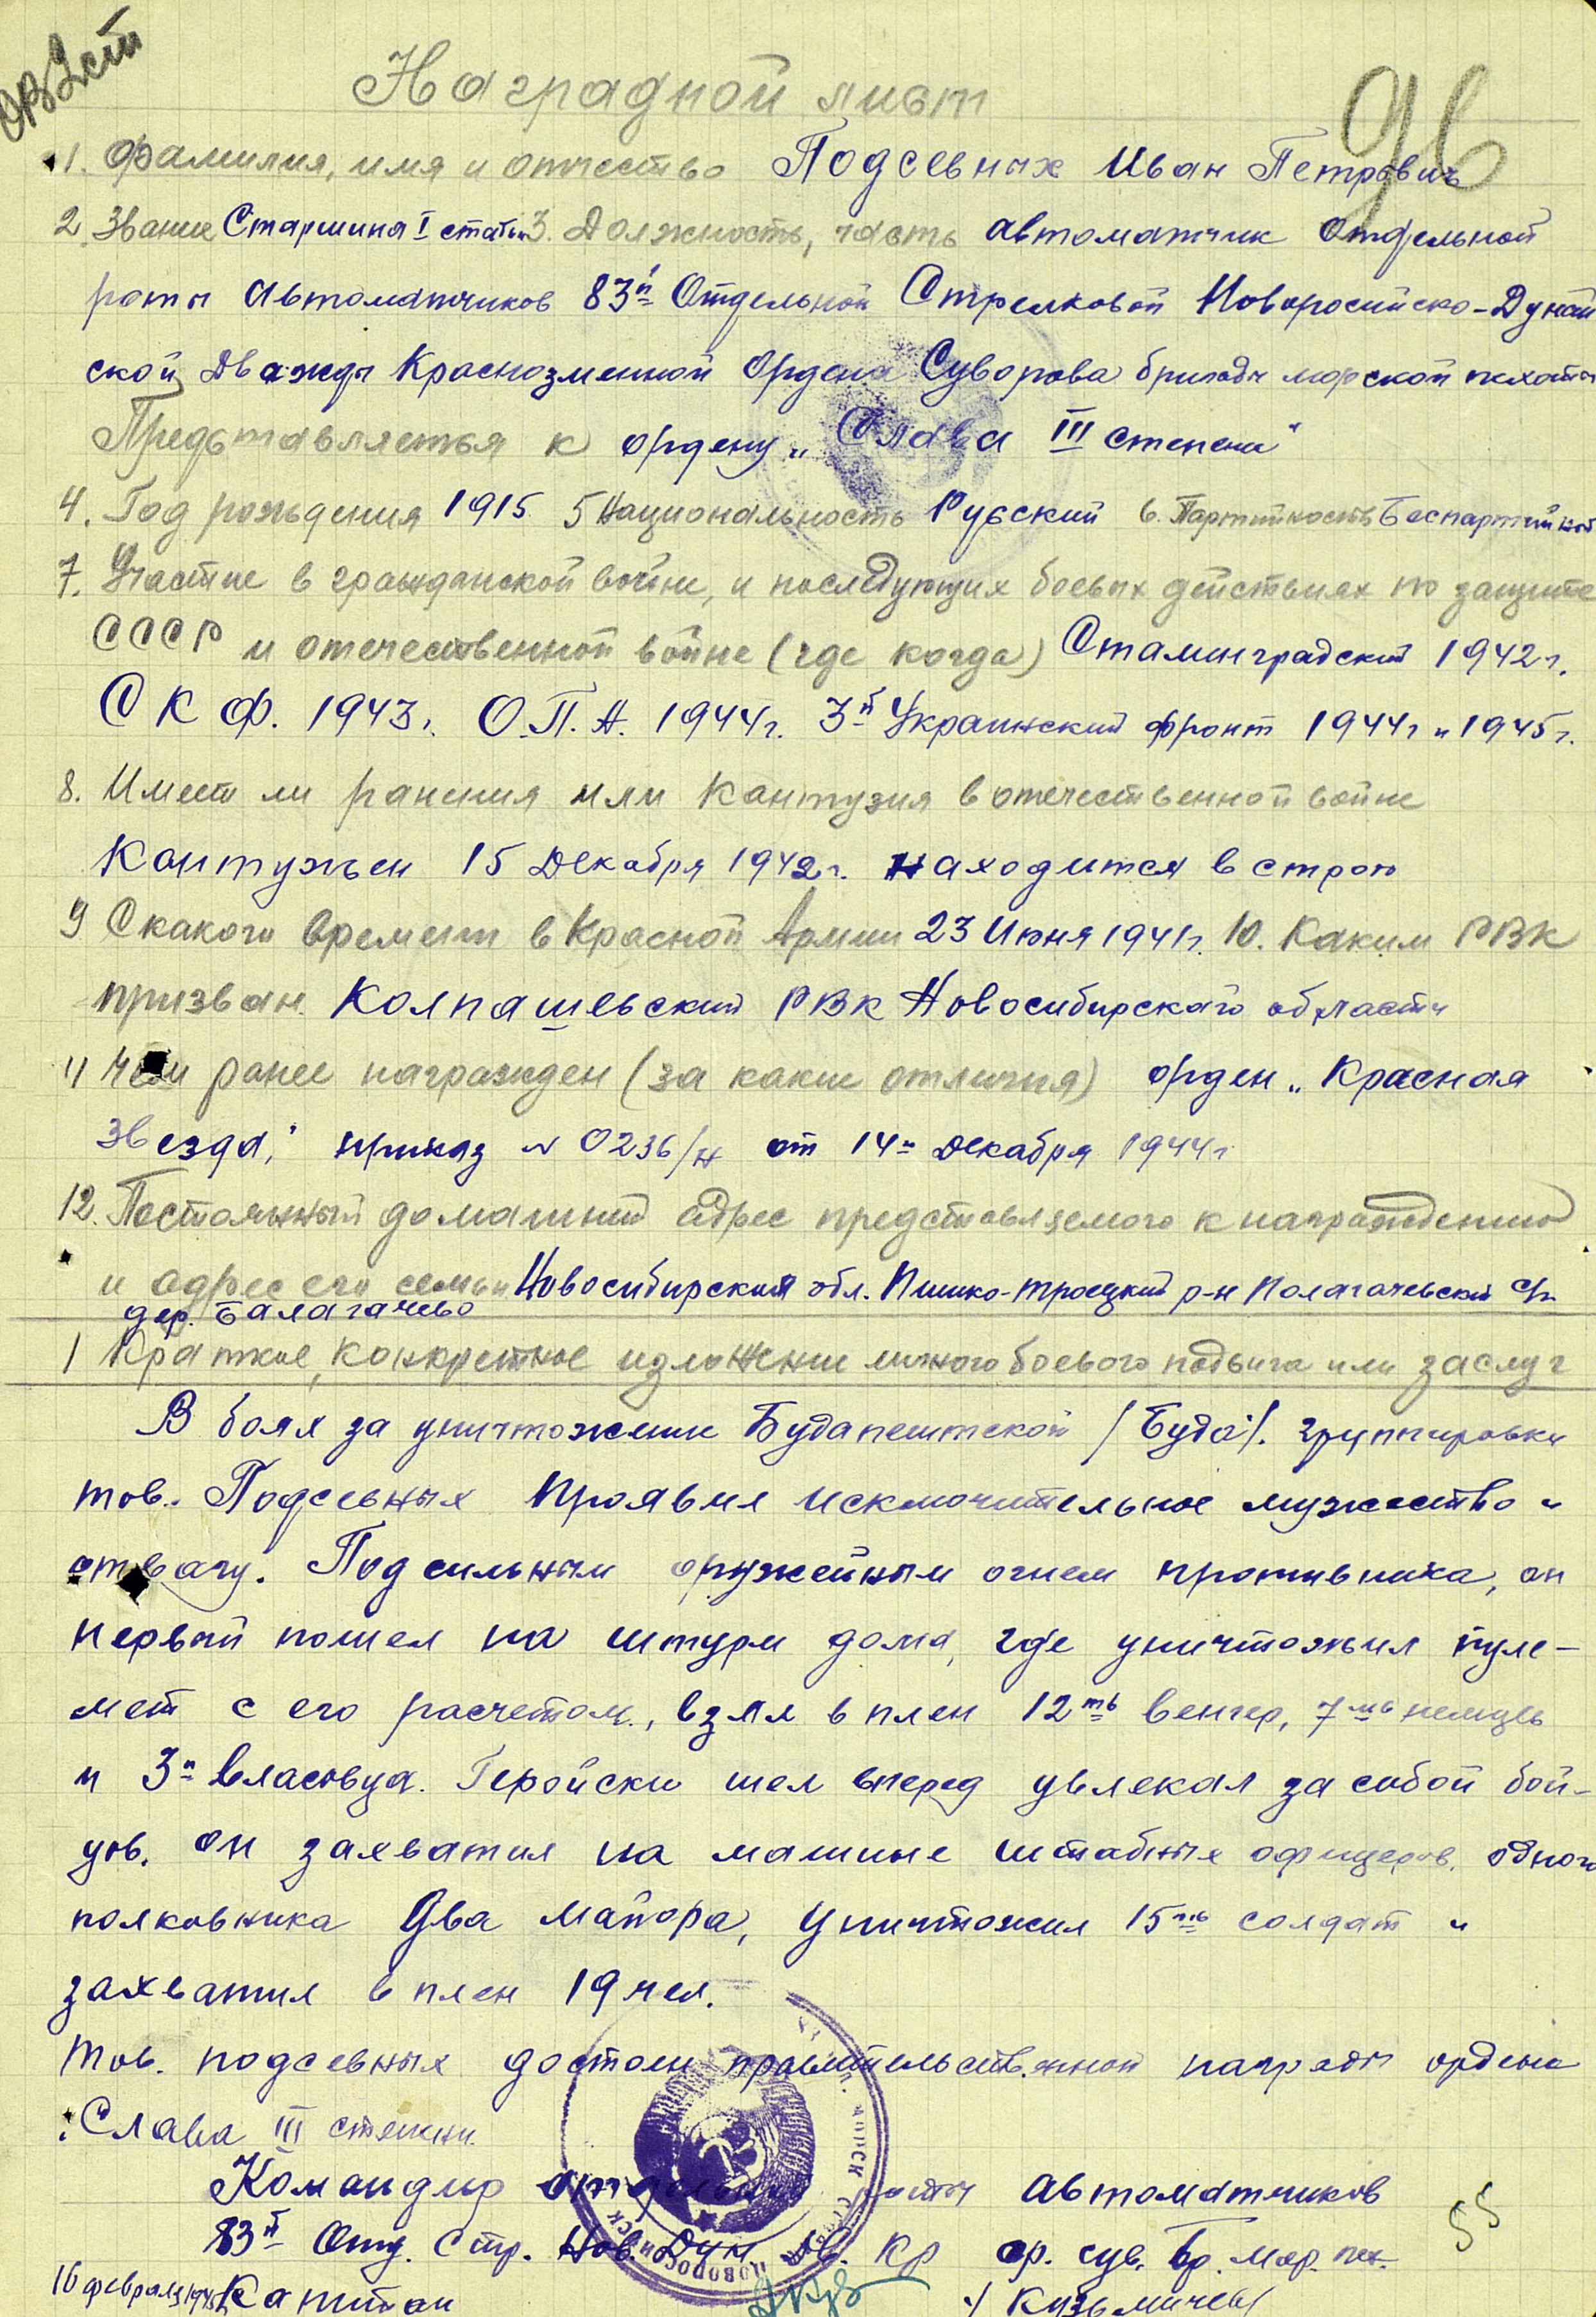 ОВ 2 ст
96
Наградной лист
1. Фамилия, имя и отчество Подсевных Иван Петрович
2. Звание Старшина I статьи 3. Должность, часть автоматчик Отдельной
роты автоматчиков 83й Отдельной Стрелковой Новоросийско-Дунай
ской Дважды Краснозменной Ордена Суворова бригады морской пехоты
Представляется к ордену „Слава III степени"
4. Год рождения 1915 5 Национальность Русский 6. Партийность Беспартийной
7. Участие в гражданской войне, и последующих боевых действиях по защите
СССР и отечественной войне (где когда) Сталинградский 1942г.
С К Ф. 1943г. О.П.А. 1944г. 3й Украинский фронт 1944г и 1945г.
8. Имеет ли ранения или контузия в отечественной войне
Контужен 15 Декабря 1942г. находится в строю
9 С какого времени в Красной Армии 23 Июня 1941г. 10. Каким РВК
призван. Колпашевский РВК Новосибирского области
11 Чем ранее награжден (за какие отличия) орден „Красная
Звезда", приказ № 0236/н от 14го Декабря 1944г
12. Постоянный домашний адрес представляемого к награждению
и адрес его семьи Новосибирская обл. Пишко-Троецкий р-н Полагачевский с/с
дер. Балагачево
1 Краткое, конкретное изложение личного боевого подвига или заслуг
В боях за уничтожение Будапештской /Буда/. группировки
тов. Подсевных проявил исключительное мужество и
отвагу. Под сильным оружейным огнем противника, он
первый пошел на штурм дома, где уничтожил пуле-
мет с его расчетом, взял в плен 12ть венгер, 7мь немцев
и 3х власовца. Геройски шел вперед увлекал за собой бой-
цов. он захватил на машине штабных офицеров. одного
полковника два майора, уничтожил 15ть солдат и
захватил в плен 19 чел.
Тов. подсевных достоен правительственной награды ордена
„Слава III степени.
Командир отдельной роты автоматчиков
83й Отд. Стр. Нов. Дун дв. Кр ор. сув. бр. мор. пех.
16 февраля 1945г Капитан / Кузьмичев /
55